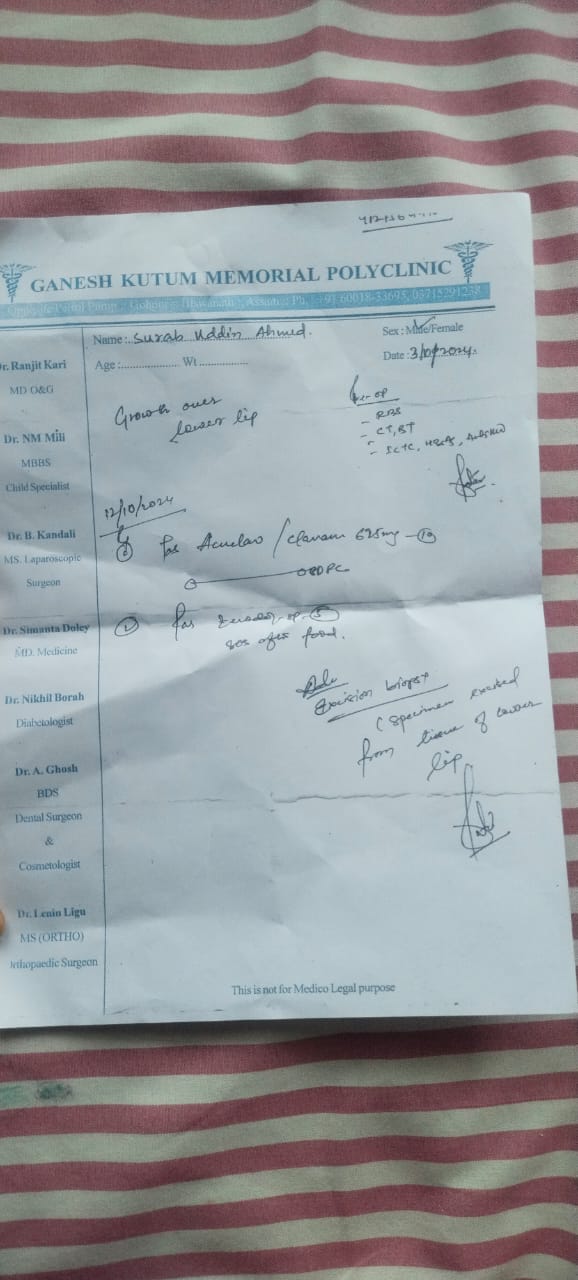 GANESH KUTUM MEMORIAL POLYCLINIC
Opposite Petrol Pump Gohpur Biswanath Assam Ph. +91 60018-33695, 03715291238
Name: Surab Uddin Ahmed.
Sex: Male/Female
Age: Wt
Date: 3/10/2024.
Dr. Ranjit Kari
MD O&G
Dr. NM Mili
MBBS
Child Specialist
Dr. B. Kandali
MS. Laparoscopic
Surgeon
Dr. Simanta Doley
MD. Medicine
Dr. Nikhil Borah
Diabetologist
Dr. A. Ghosh
BDS
Dental Surgeon
&
Cosmetologist
Dr. Lenin Ligu
MS (ORTHO)
Orthopaedic Surgeon
Growth over
lower lip
- RBS
- CT, BT
12/10/2024
/Clavam 625mg - 10
PC
② 5
sos after food.
Adv
Excision biopsy
(Specimen excised
from tissue of lower
lip
This is not for Medico Legal purpose